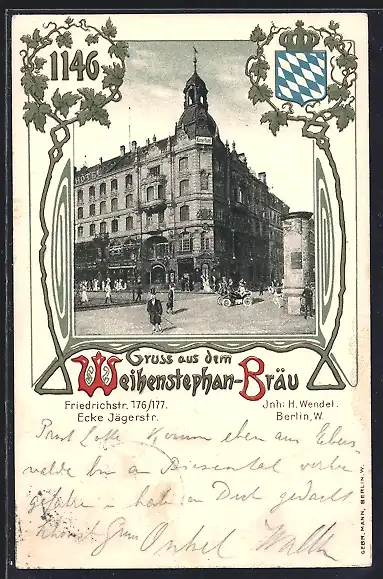 1146
HOTEL
Gruss aus dem
Weihenstephan-Bräu
Friedrichstr. 176/177.
Ecke Jägerstr.
Jnh: H. Wendel.
Berlin, W.
Prost Lotte Komm eben aus Ebers
walde bin an Biesental vorbei
gefahren u habe an Dich gedacht
Onkel
GEBR. MANN, BERLIN. W.